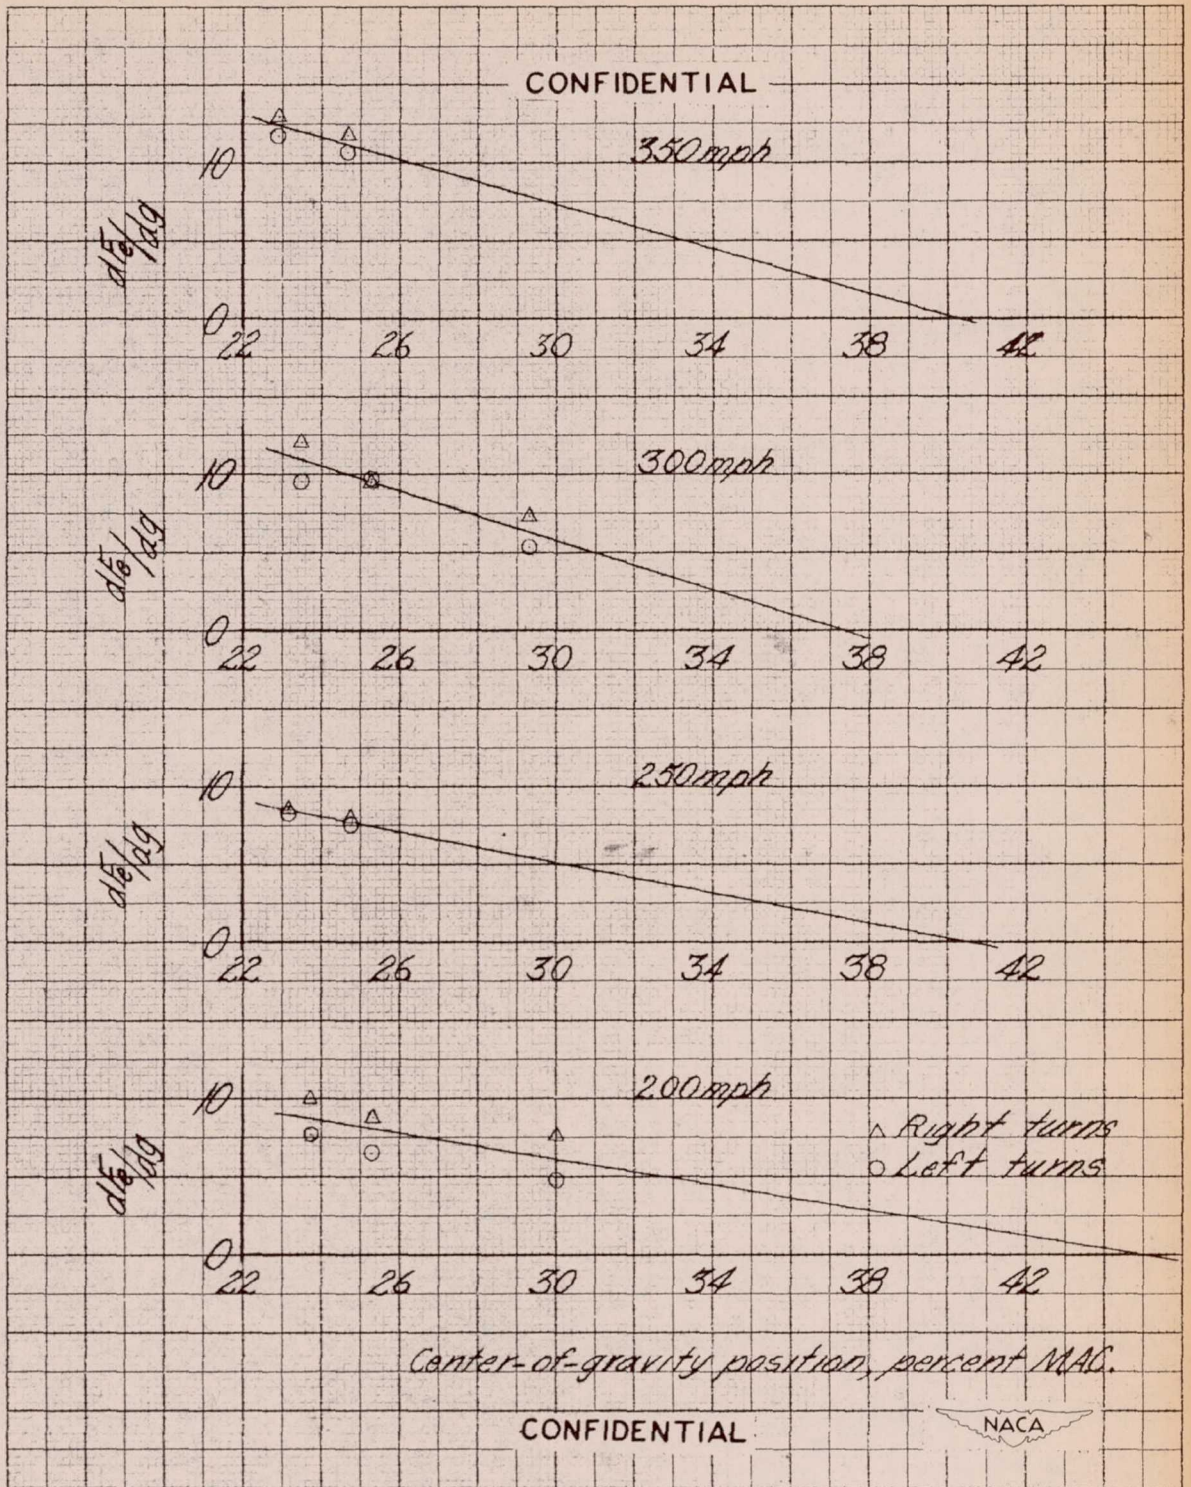 CONFIDENTIAL
350mph
10
dFe/dg
0
22 26 30 34 38 42
300mph
10
dFe/dg
0
22 26 30 34 38 42
250mph
10
dFe/dg
0
22 26 30 34 38 42
200mph
10
△ Right turns
dFe/dg
○ Left turns
0
22 26 30 34 38 42
Center-of-gravity position, percent MAC.
CONFIDENTIAL
NACA